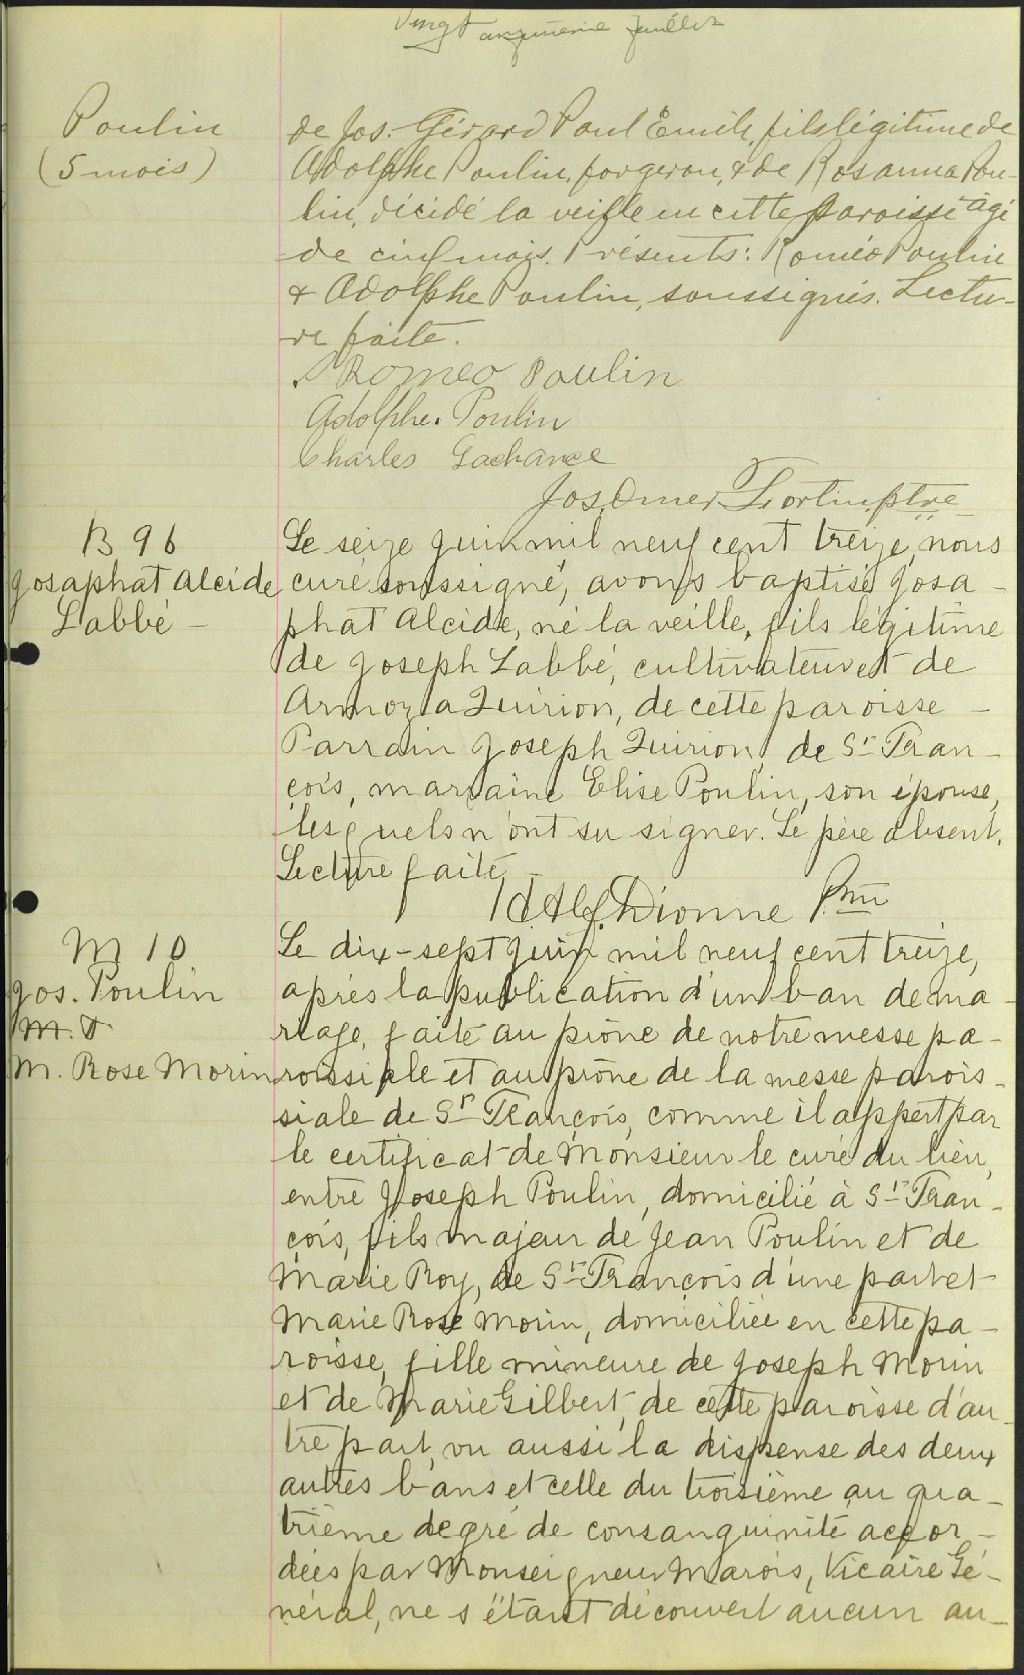 Vingt cinquième feuillet
Poulin
(5 mois)
de Jos. Gérard Paul Émile, fils légitime de
Adolphe Poulin, forgeron, & de Rosanna Pou-
lin, décédé la veille en cette paroisse âgé
de cinq mois. Présents: Roméo Poulin
& Adolphe Poulin, soussignés. Lectu-
re faite.
Romeo Poulin
Adolphe. Poulin
Charles Lachance
Jos. Omer Fortin, ptre
B 96
Josaphat Alcide
Labbé -
Le seize juin mil neuf cent treize, nous
curé soussigné, avons baptisé Josa-
phat Alcide, né la veille, fils légitime
de Joseph Labbé, cultivateur et de
Armoza Quirion, de cette paroisse -
Parrain Joseph Quirion, de St Fran-
çois, marraine Élise Poulin, son épouse,
lesquels n'ont su signer. Le père absent.
Lecture faite
Alf. Dionne Ptre
M 10
Jos. Poulin
M. &
M. Rose Morin
Le dix-sept juin mil neuf cent treize,
après la publication d'un ban de ma-
riage, faite au prône de notre messe pa-
roissiale et au prône de la messe parois-
siale de St François, comme il appert par
le certificat de Monsieur le curé du lieu,
entre Joseph Poulin, domicilié à St Fran-
çois, fils majeur de Jean Poulin et de
Marie Roy, de St François d'une part et
Marie Rose Morin, domiciliée en cette pa-
roisse, fille mineure de Joseph Morin
et de Marie Gilbert, de cette paroisse d'au-
tre part, vu aussi la dispense des deux
autres bans et celle du troisième au qua-
trième degré de consanguinité accor-
dées par Monseigneur Marois, Vicaire Gé-
néral, ne s'étant découvert aucun au-